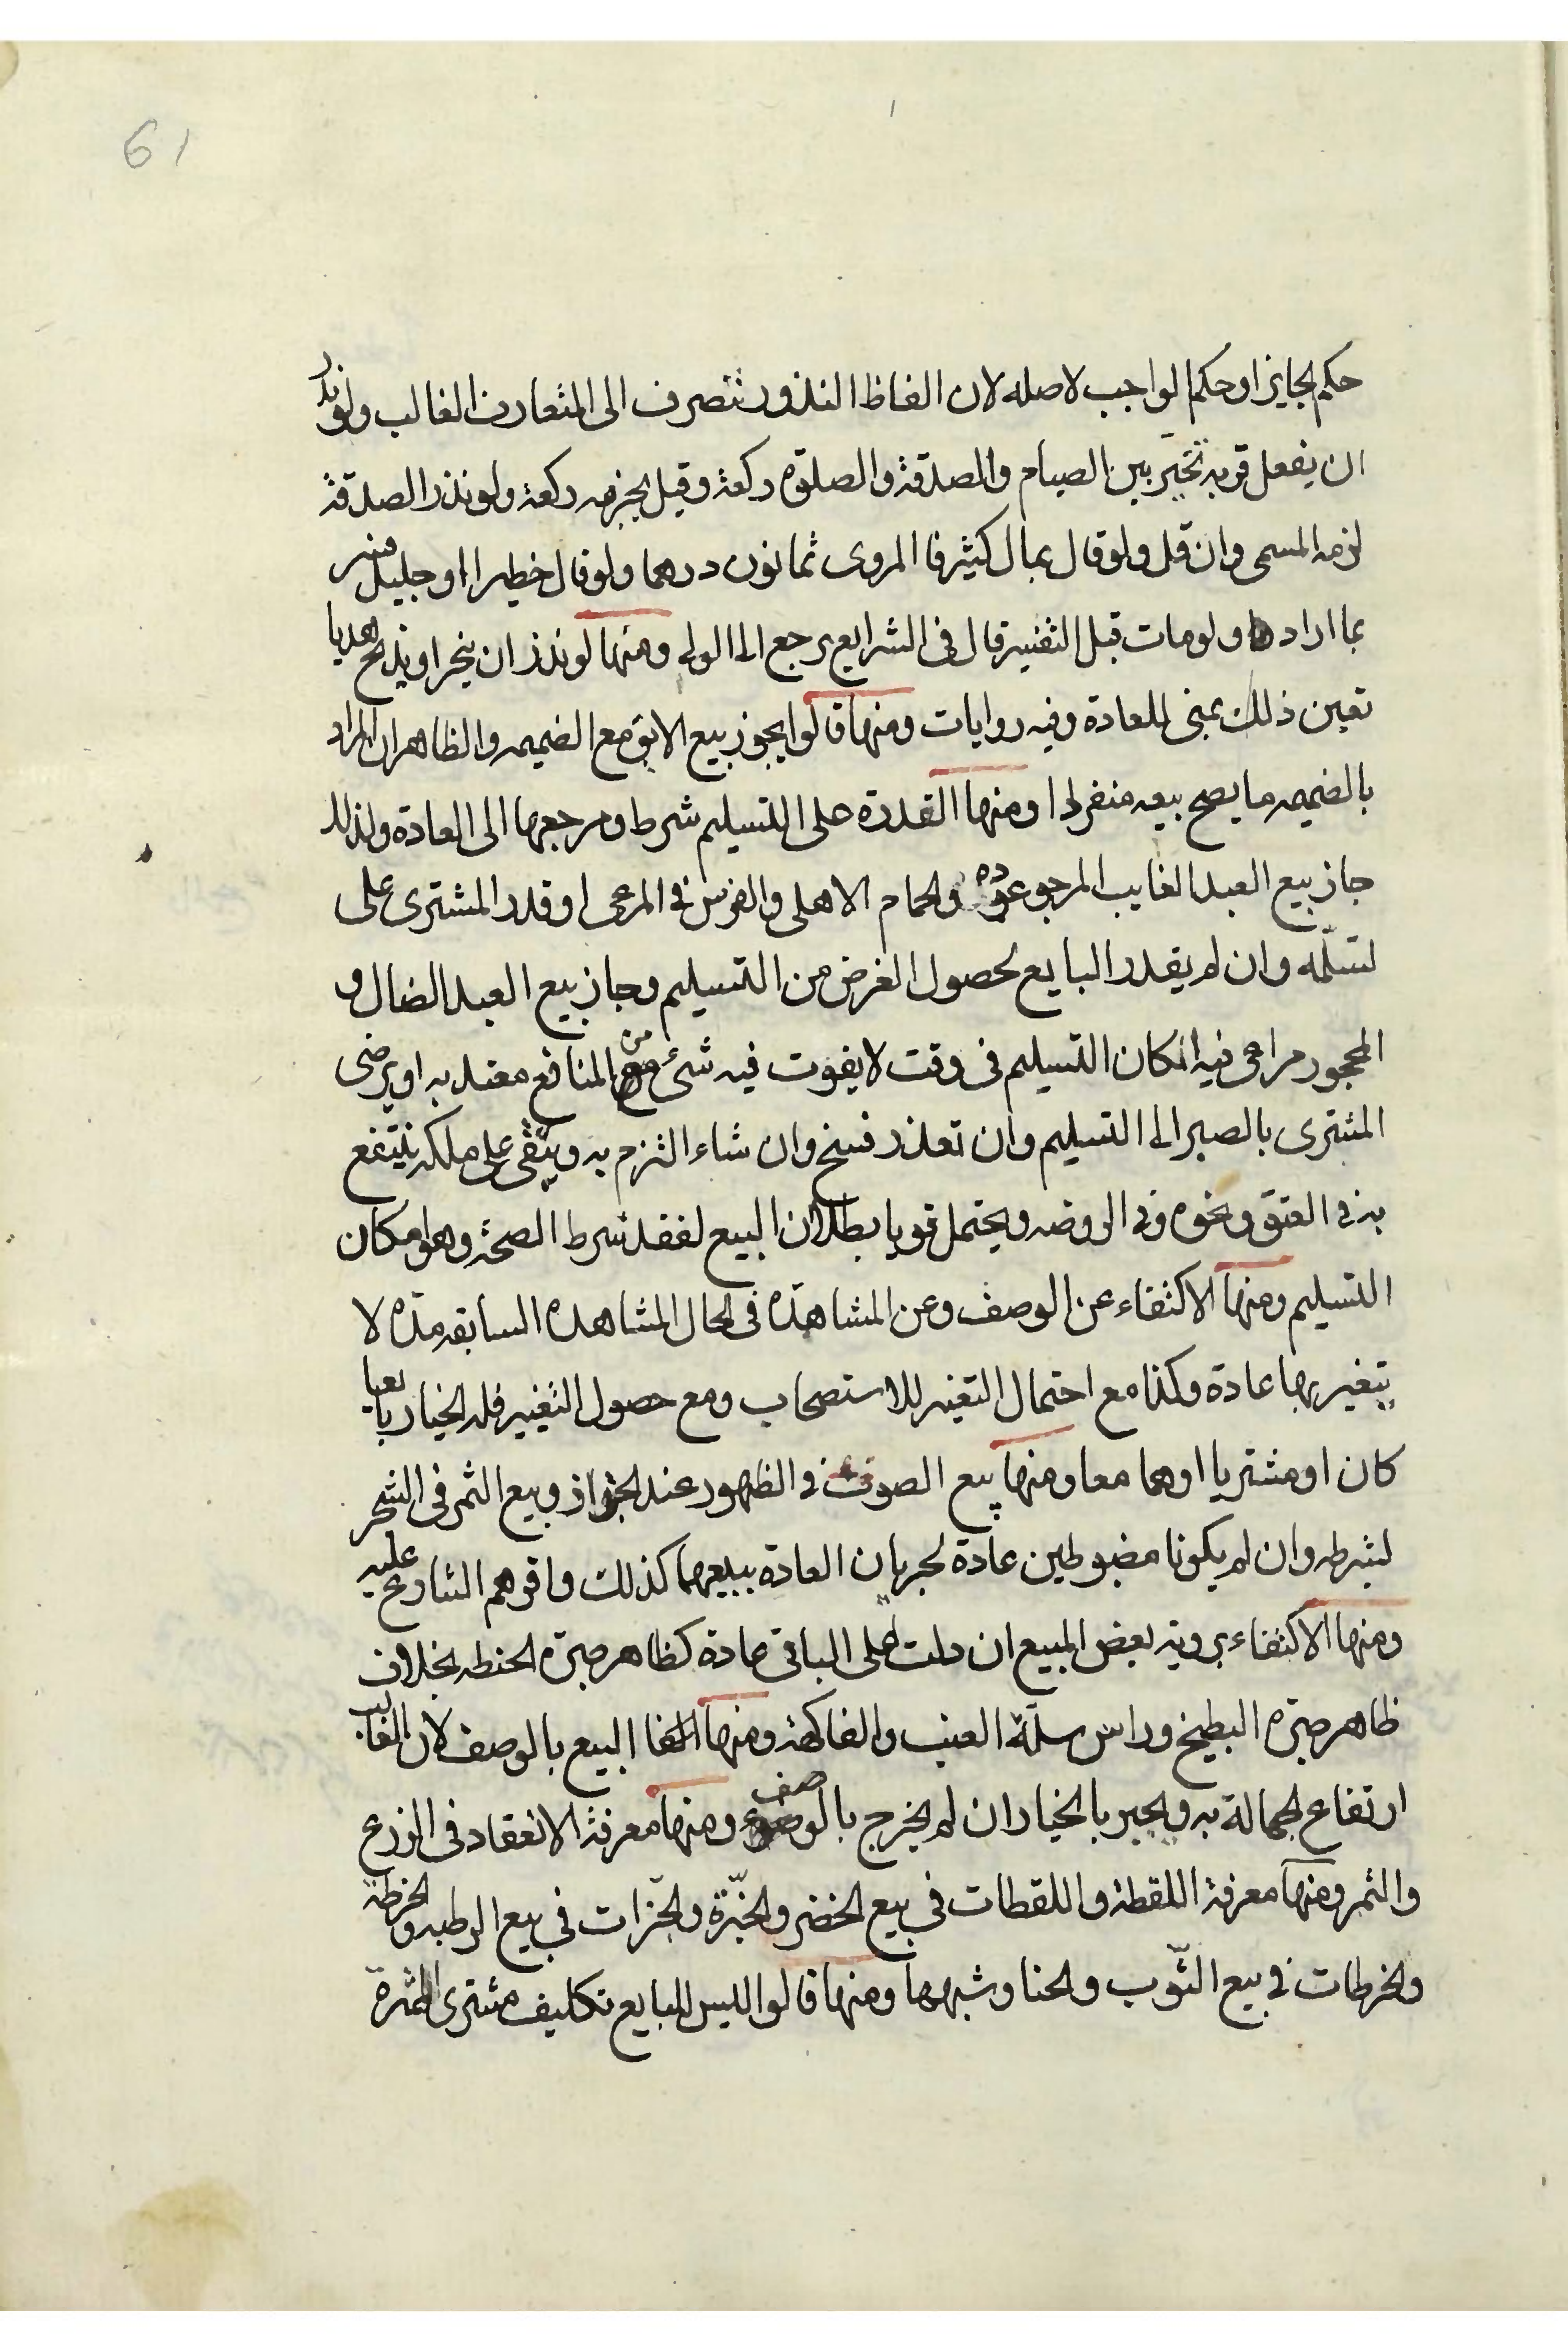 61
حكم الجايز او حكم الواجب لاصله لان الفاظ النذور تنصرف الى المتعارف الغالب ولو نذر
ان يفعل قربه تخيّر بين الصيام والصدقة والصلوة ركعة وقيل لا يجزيه ركعة ولو نذر الصدقة
لزمه المسمى وان قل ولو قال بمال كثير فالمروى ثمانون درهما ولو قال خطير او جليل فسر
بما اراد ولو مات قبل التفسير قال فى الشرايع يرجع الى الولى ومنها لو نذر ان ينحر او يذبح هديا
تعين ذلك بمنى للعادة وفيه روايات ومنها قالوا يجوز بيع الابق مع الضميمه والظاهر ان المراد
بالضميمه ما يصح بيعه منفردا ومنها القدرة على التسليم شرط ومرجعها الى العادة ولذلك
جاز بيع العبد الغايب المرجو عوده والحمام الاهلى والفرس فى المرعى او قدر المشترى على
تسلّمه وان لم يقدر البايع لحصول الغرض من التسليم وجاز بيع العبد الضال و
المحجور مراعى فيه امكان التسليم فى وقت لا يفوت فيه شئ من المنافع معتد به او يرضى
المشترى بالصبر الى التسليم وان تعذر فسخ وان شاء التزم به ويبقى على ملكه ينتفع
به فى العتق ونحوه وفى الروضه ويحتمل قويا بطلان البيع لفقد شرط الصحة وهو امكان
التسليم ومنها الاكتفاء عن الوصف وعن المشاهدة فى الحال المشاهده السابقه مدّه لا
يتغير بها عادة وكذا مع احتمال التغير للاستصحاب ومع حصول التغيير فله الخيار بايعا
كان او مشتريا او هما معا ومنها بيع الصوف فى الظهور عند الجزاز وبيع الثمر فى الشجر
بشرطه وان لم يكونا مضبوطين عادة لجريان العادة ببيعهما كذلك واقرهم الشارع عليه
ومنها الاكتفاء بروية بعض المبيع ان دلت على الباقى عادة كظاهر صبرة الحنطه بخلاف
ظاهر صبره البطيخ وراس سلّة العنب والفاكهة ومنها البيع بالوصف لان الغالب
ارتفاع الجهالة به ويجبر بالخيار ان لم يخرج بالوصف ومنها معرفة الانعقاد فى الزرع
والثمر ومنها معرفة اللقطة واللقطات فى بيع الخضر والجزّة والجزّات فى بيع الرطبه والخرطة
والخرطات فى بيع التّوب والحنا وشبهها ومنها قالوا ليس للبايع تكليف مشترى الثمرة